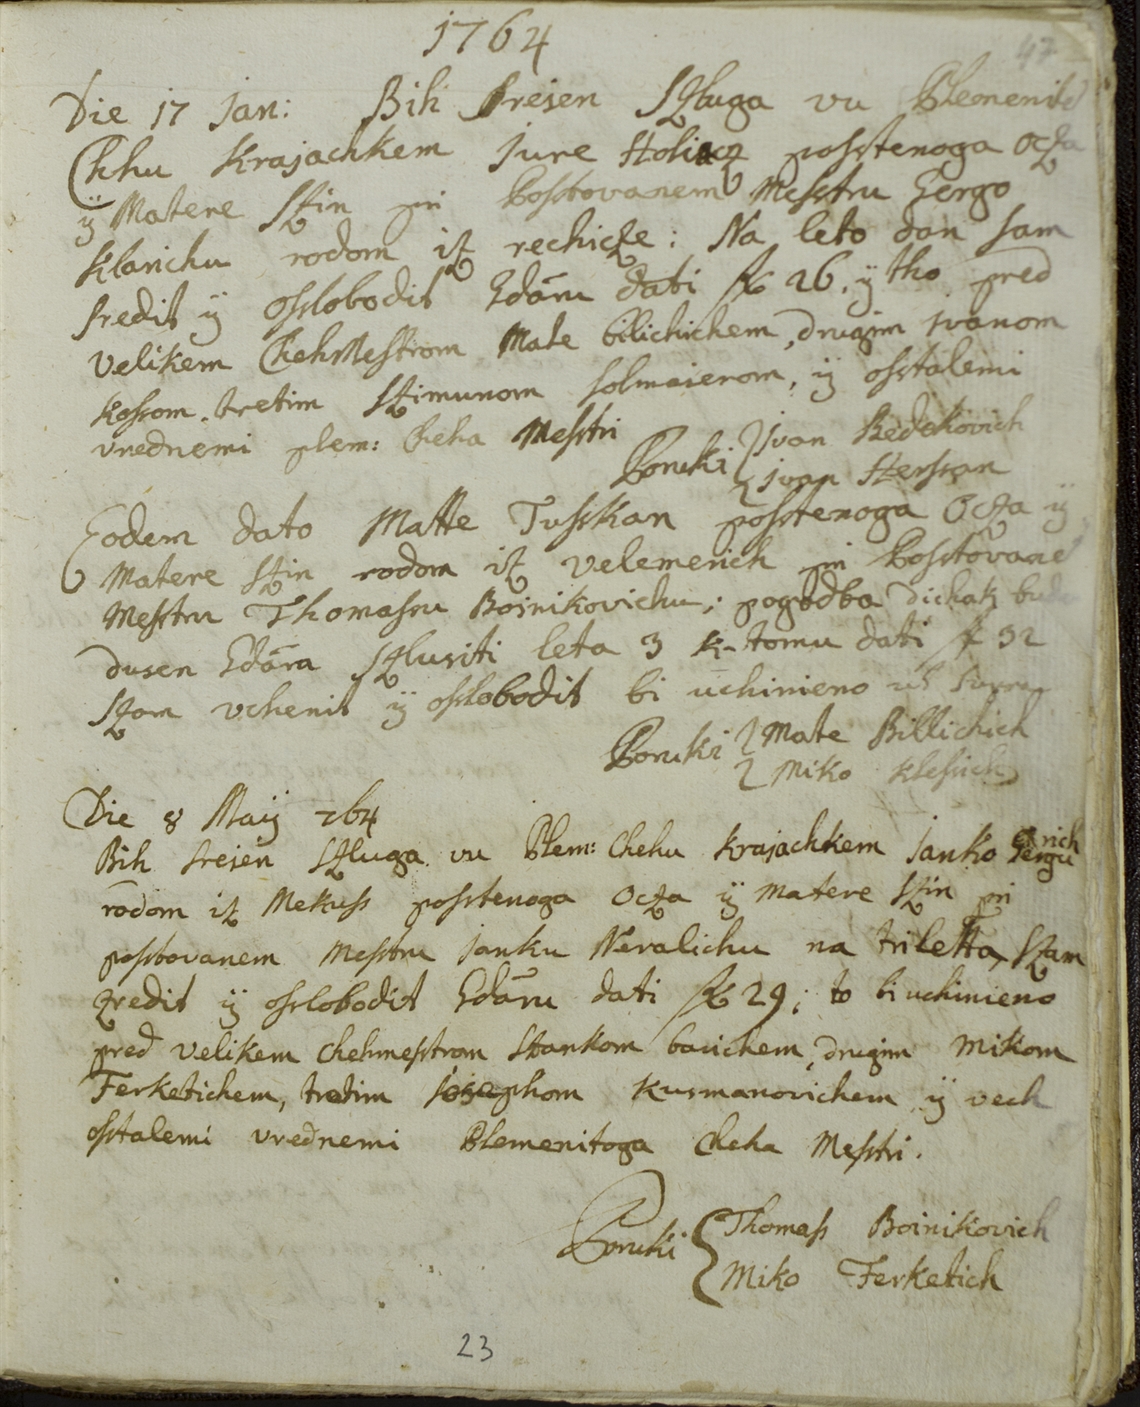 1764
47
Die 17 Jan: Bih srejen Szluga vu Plemenito
Chehu Krajachkem Jure Holiacz posstenoga Ocza
ÿ Matere Szin pri Posstovanem Messtru Gergo
Klarichu rodom iz rechicze: Na leto dan sam
sredit ÿ osslobodit Gdāru dati f 26. ÿ tho pred
velikem Chehmestrom Mate Billichichem, drugim Ivanom
Kossom, tretim Stimunom Solmaierom, ÿ osstalemi
vrednemi plem: Cheha Messtri
Poruki Ivan Bedekovich
Ivan Sterssan
Eodem dato Matte Tusskan posstenoga Ocza ÿ
Matere szin rodom iz velemerich pri Posstovane
Messtru Thomassu Boinikovichu; pogodba Dichak bude
dusen Gdāra szlusiti leta 3 k-tomu dati f 32
szam vchenit ÿ osslobodit bi uchinieno ut supra
Poruki Mate Billichich
Miko Klessich
Die 8 Maÿ 764
Bih srejen Szluga vu Plem: Chehu Krajachkem Janko Gergurich
rodom iz Mekuss posstenoga Ocza ÿ Matere Szin pri
posstovanem Messtru Janku Neralichu na tri letta, szam
zredit ÿ osslobodit Gdāru dati f 29; to bi uchinieno
pred velikem chehmesstrom Stankom bavichem, drugim Mikom
Ferketichem, tretim Josephom Kusmanovichem ÿ vech
osstalemi vrednemi Plemenitoga Cheha Messtri.
Poruki Thomass Boinikovich
Miko Ferketich
23